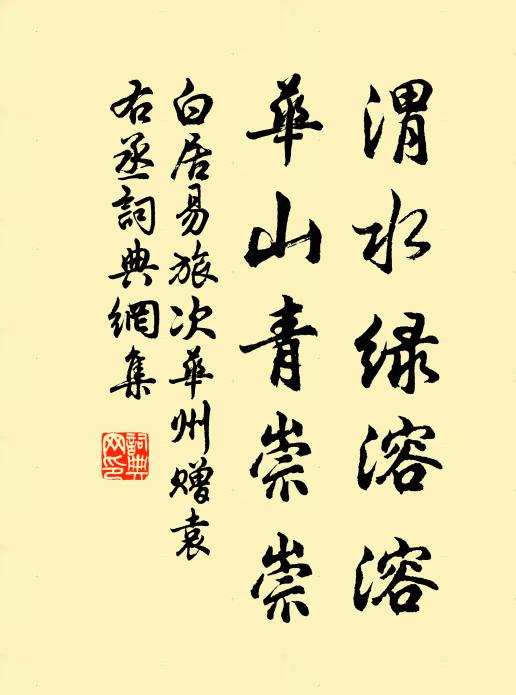 渭水绿溶溶
華山青崇崇
白居易旅次華州贈袁
右丞詞典網集
詞典網印